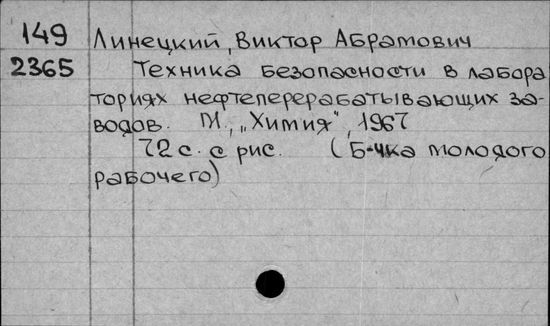 149 Линецкий, Виктор Абрамович
2365 Техника безопасности в лабора
ториях нефтеперерабатывающих за-
водов. М., „Химия", 1967
72 с. с рис. (Б-чка молодого
рабочего)